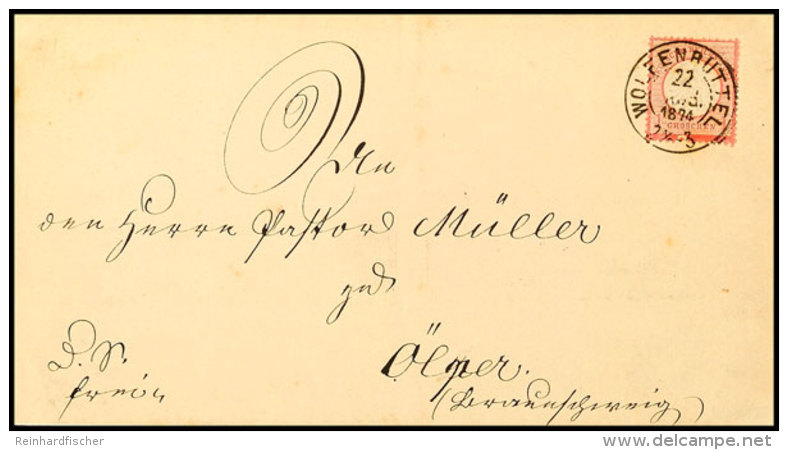 WOLFENBÜTTEL
22
1874
2½-3
GROSCHEN
An
den Herrn Pastor Müller
zu
Ölper.
(Braunschweig)
D. S.
frei
Reinhardfischer
delcampe.net